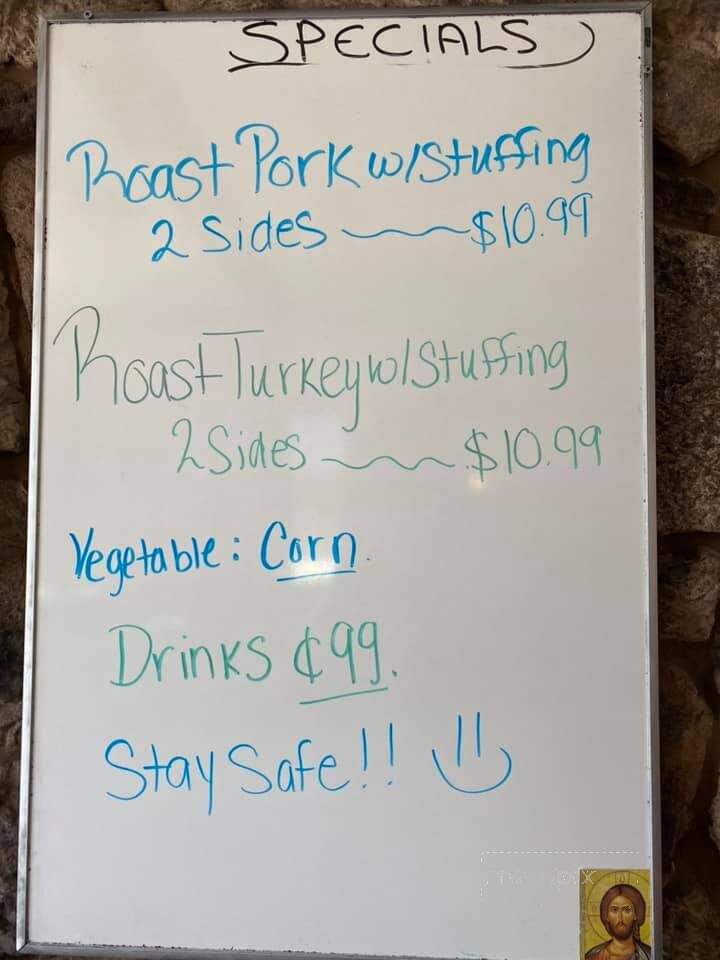 SPECIALS
Roast Pork w/Stuffing
2 Sides $10.99
Roast Turkey w/Stuffing
2 Sides $10.99
Vegetable: Corn.
Drinks ¢99.
Stay Safe!!